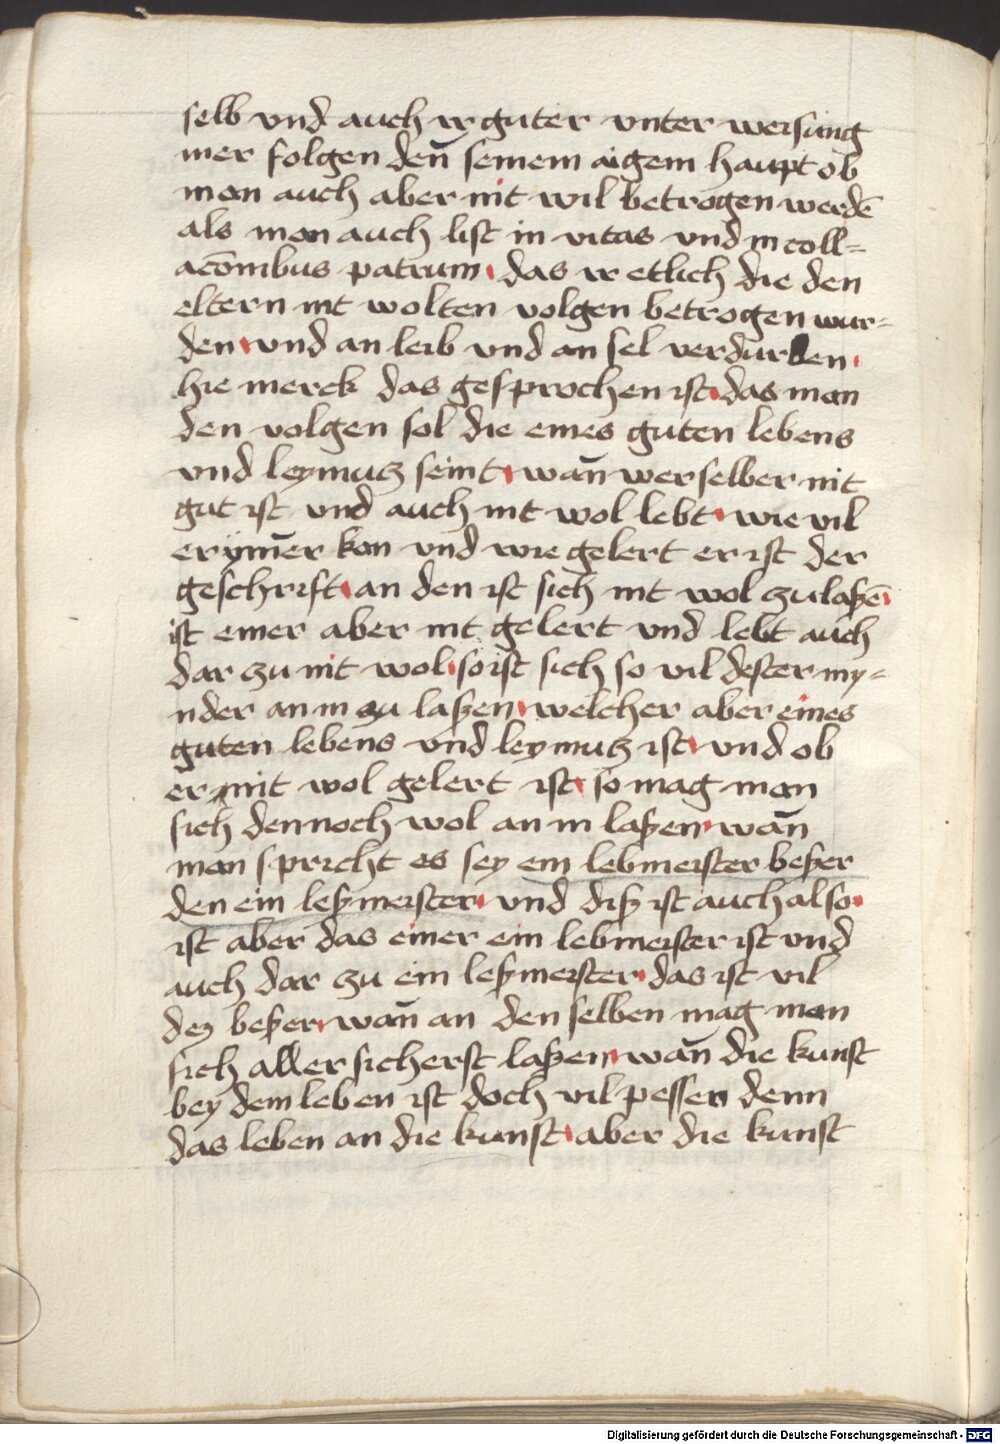 selb vnd auch ir guter vnter weisung
mer folgen den̄ seinem aigem haupt ob
man auch aber nit wil betrogen werdē
als man auch list in vitas vnd in coll=
acōnibus patrum das ir etlich die den
eltern nit wolten volgen betrogen wur=
den vnd an leib vnd an sel verdurben
hie merck das gesprochen ist das man
den volgen sol die eines guten lebens
vnd leymutz seint wan̄ wer selber nit
gut ist vnd auch nit wol lebt wie vil
er ym̄er kan vnd wie gelert er ist der
geschrift an den ist sich nit wol zulaßē
ist einer aber nit gelert vnd lebt auch
dar zu nit wol so ist sich so vil dester my=
nder an in zu laßen welcher aber eines
guten lebens vnd leymutz ist vnd ob
er nit wol gelert ist so mag man
sich dennoch wol an in laßen wan̄
man spricht es sey ein lebmeister beßer
den ein leßmeister vnd diß ist auch also
ist aber das einer ein lebmeister ist vnd
auch dar zu ein leßmeister das ist vil
dez beßer wan̄ an den selben mag man
sich aller sicherst laßen wan̄ die kunst
bey dem leben ist doch vil pesser denn
das leben an die kunst aber die kunst
Digitalisierung gefördert durch die Deutsche Forschungsgemeinschaft - DFG